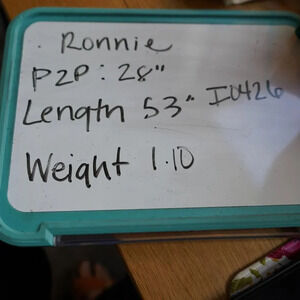 Ronnie
P2P: 28"
Length 53" I0426
Weight 1.10